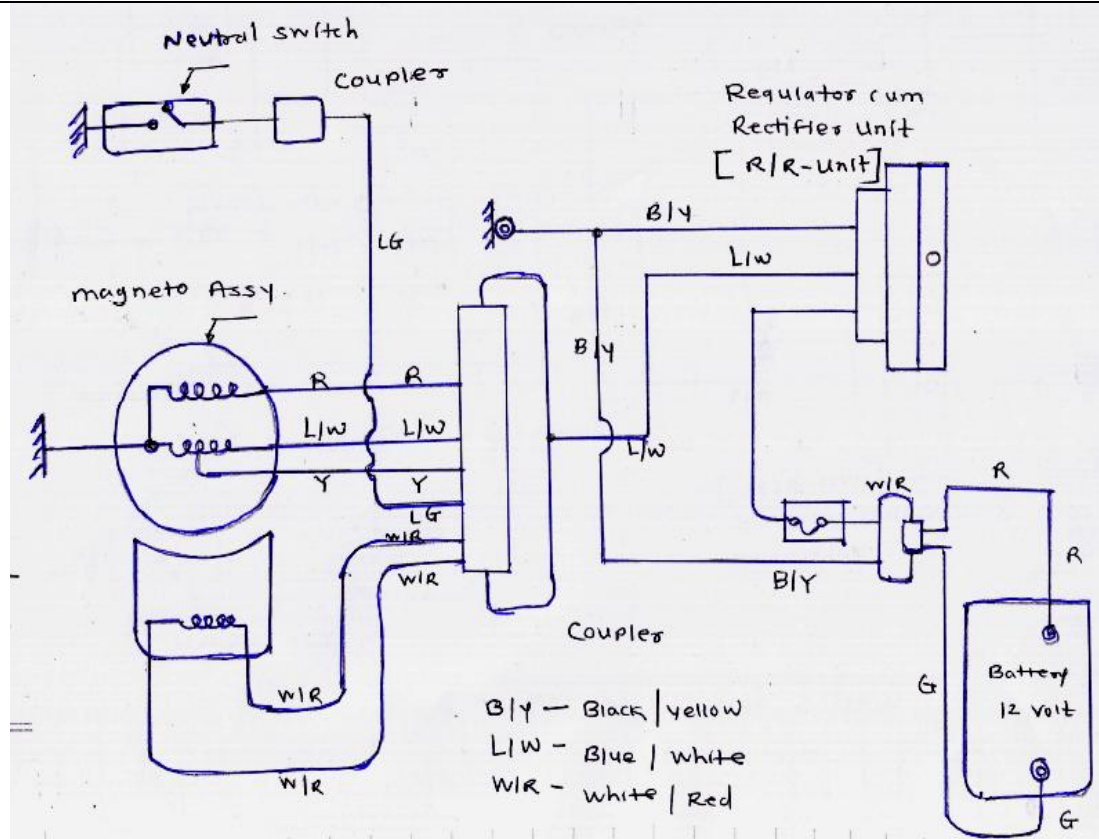 Neutral switch
Coupler
Requlator cum
Rectifier unit
[ R/R-unit ]
B/Y
L/W
LG
magneto Assy
B/Y
R
R
L/W
L/W
L/W
Y
Y
LG
W/R
W/R
W/R
R
B/Y
R
Coupler
Battery
12 volt
G
W/R
W/R
G
B/Y — Black / yellow
L/W - Blue / white
W/R - white / Red